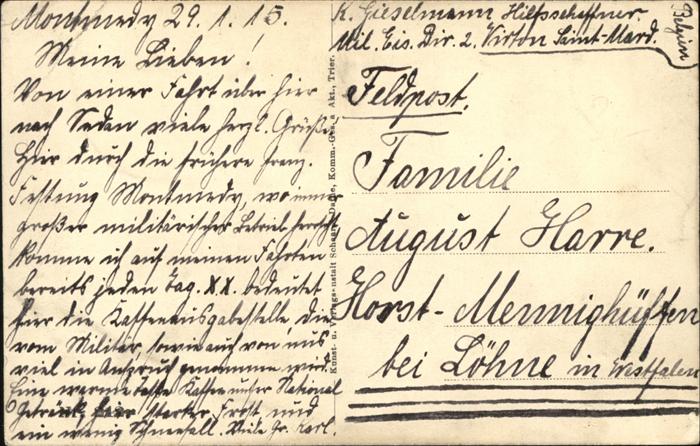 Montmedy 29.1.15.
Meine Lieben!
Von einer Fahrt über hier
nach Sedan viele herzl. Grüße.
Hier durch die frühere franz.
Festung Montmedy, wo immer
großer militärischer Betrieb herrscht,
komme ich auf meinen Fahrten
bereits jeden Tag. XX. bedeutet
hier die Kaffeeausgabestelle, die
vom Militär, sowie auch von uns
viel in Anspruch genommen wird.
Eine warme Tasse Kaffee unser National
Getränk, hier starker Frost, und
ein wenig Schneefall. Viele Gr. Karl.
Kunst- u. Verlags-Anstalt Schaar & Dathe, Komm.-Ges. a. Akt., Trier.
K. Gieselmann Hilfsschaffner.
Mil. Eis. Dir. 2. Virton Saint-Mard.
Belgien
Feldpost.
Familie
August Harre.
Horst-Mennighüffen
bei Löhne in Westfalen